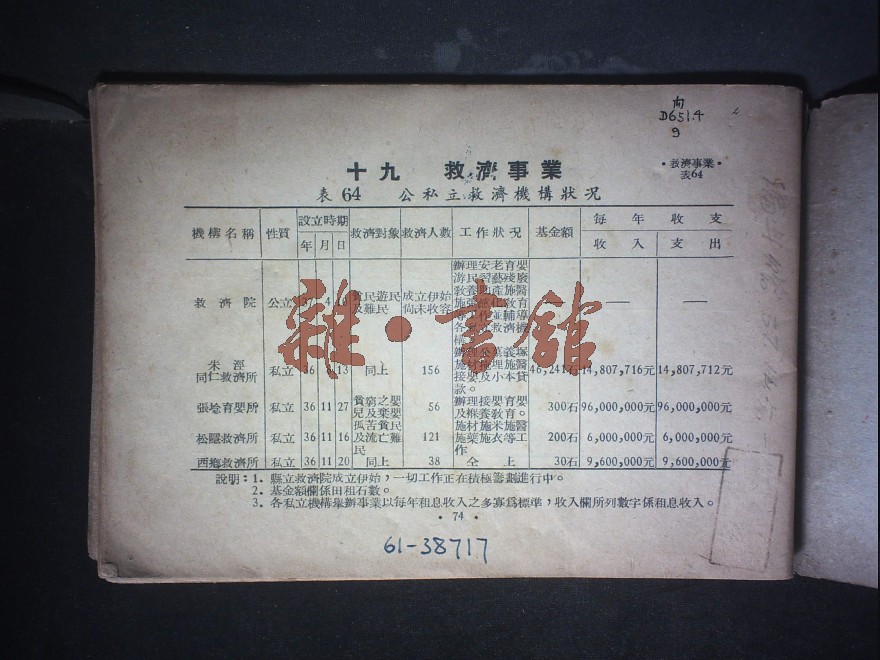 向
D651.4
9
•救濟事業•
表64
十九 救濟事業
表 64 公私立救濟機構狀況
機構名稱 性質 設立時期 救濟對象 救濟人數 工作狀況 基金額 每年收支
年 月 日 收入 支出
救濟院 公立 4 貧民遊民及難民 成立伊始尚未收容 辦理安老育嬰游民習藝殘廢教養助產施醫 — —
朱涇同仁救濟所 私立 36 13 同上 156 46,241石 14,807,716元 14,807,712元
施材 接嬰及小本貸款。
張埝育嬰所 私立 36 11 27 貧窮之嬰兒及棄嬰 56 辦理接嬰育嬰及褓養敎育。 300石 96,000,000元 96,000,000元
松隱救濟所 私立 36 11 16 孤苦貧民及流亡難民 121 施材施米施醫施藥施衣等工作 200石 6,000,000元 6,000,000元
西鄉救濟所 私立 36 11 20 同上 38 仝上 30石 9,600,000元 9,600,000元
說明：1. 縣立救濟院成立伊始，一切工作正在積極籌劃進行中。
2. 基金額欄係田租石數。
3. 各私立機構舉辦事業以每年租息收入之多寡爲標準，收入欄所列數字係租息收入。
• 74 •
61-38717
雜·書館